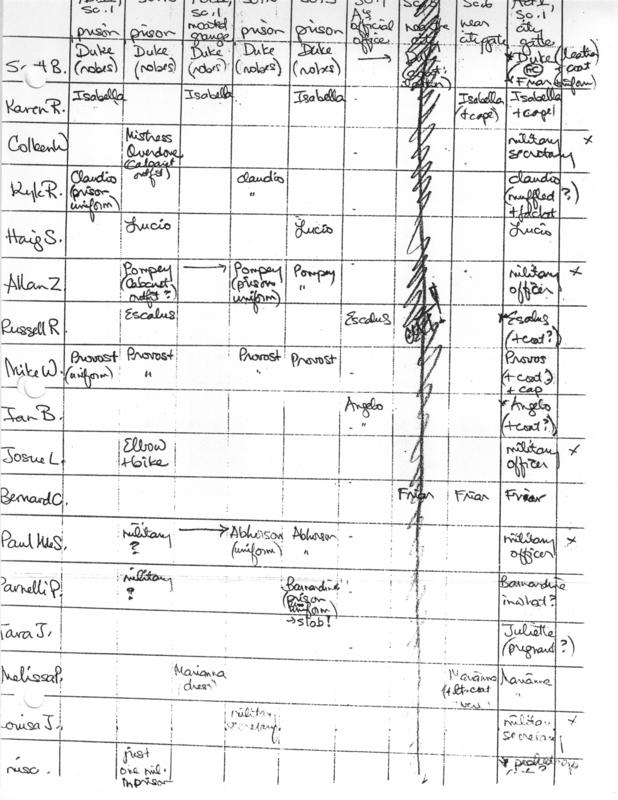 Sc.1 Sc.1 Sc.1
prison prison moated grange prison prison As official office Sc.6 near city gate Sc.1 city gate
Scott B. Duke (robes) Duke (robes) Duke (robes) Duke (robes) Duke (robes) → * Duke coat * Friar
Karen R. Isabella Isabella Isabella Isabella (+cape) Isabella +cape
Colleen W. Mistress Overdone (Cabaret outfit) military secretary x
Kyle R. Claudio (prison uniform) Claudio " Claudio (muffled + jacket ?)
Haig S. Lucio Lucio Lucio
Allan Z Pompey (Cabaret outfit?) → Pompey (prison uniform) Pompey " military officer x
Russell R. Escalus Escalus * Escalus (+coat?)
Mike W. Provost (uniform) Provost " Provost " Provost Provos (+coat?) + cap
Ian B. Angelo " * Angelo (+coat?)
Josue L. Elbow +bike military officer x
Bernard C. Friar Friar Friar
Paul McS. military ? → Abhorson (uniform) Abhorson " military officer x
Parnelli P. military ? Barnardine (prison uniform) → stab! Barnardine in what?
Tara J. Juliette (pregnant?)
Melissa P. Marianna dress Marianne (+lt. coat Marianne "
Louisa J. military secretary. military secretary x
misc. just one mil. in prison *